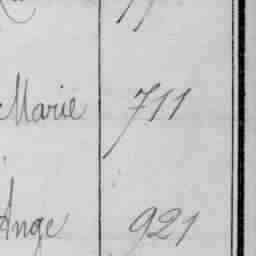 Marie 711
Ange 921